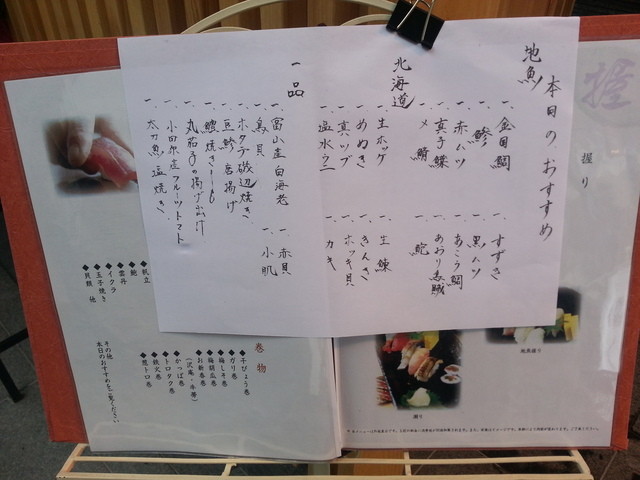 本日のおすすめ
地魚
一、金目鯛
一、鯵
一、赤ムツ
一、真子鰈
一、〆鯖
一、すずき
一、黒ムツ
一、あこう鯛
一、あおり烏賊
北海道
一、生ホッケ
一、めぬき
一、真ツブ
一、塩水ウニ
一、生鰊
一、きんき
一、ホッキ貝
一、カキ
一品
一、富山産白海老
一、鳥貝
一、ホタテ磯辺焼き
一、豆鯵唐揚げ
一、丸茄子の揚げ出し
一、小田原産フルーツトマト
一、太刀魚塩焼き
一、赤貝
一、小肌
握
握り
地魚握り
握り
◆帆立
◆鮑
◆雲丹
◆イクラ
◆玉子焼き
◆貝類 他
その他
本日のおすすめをご覧ください
巻物
◆干ぴょう巻
◆ガリ巻
◆梅しそ巻
◆梅胡瓜巻
◆お新香巻
◆かっぱ巻
◆トロタク巻
◆鉄火巻
◆葱トロ巻